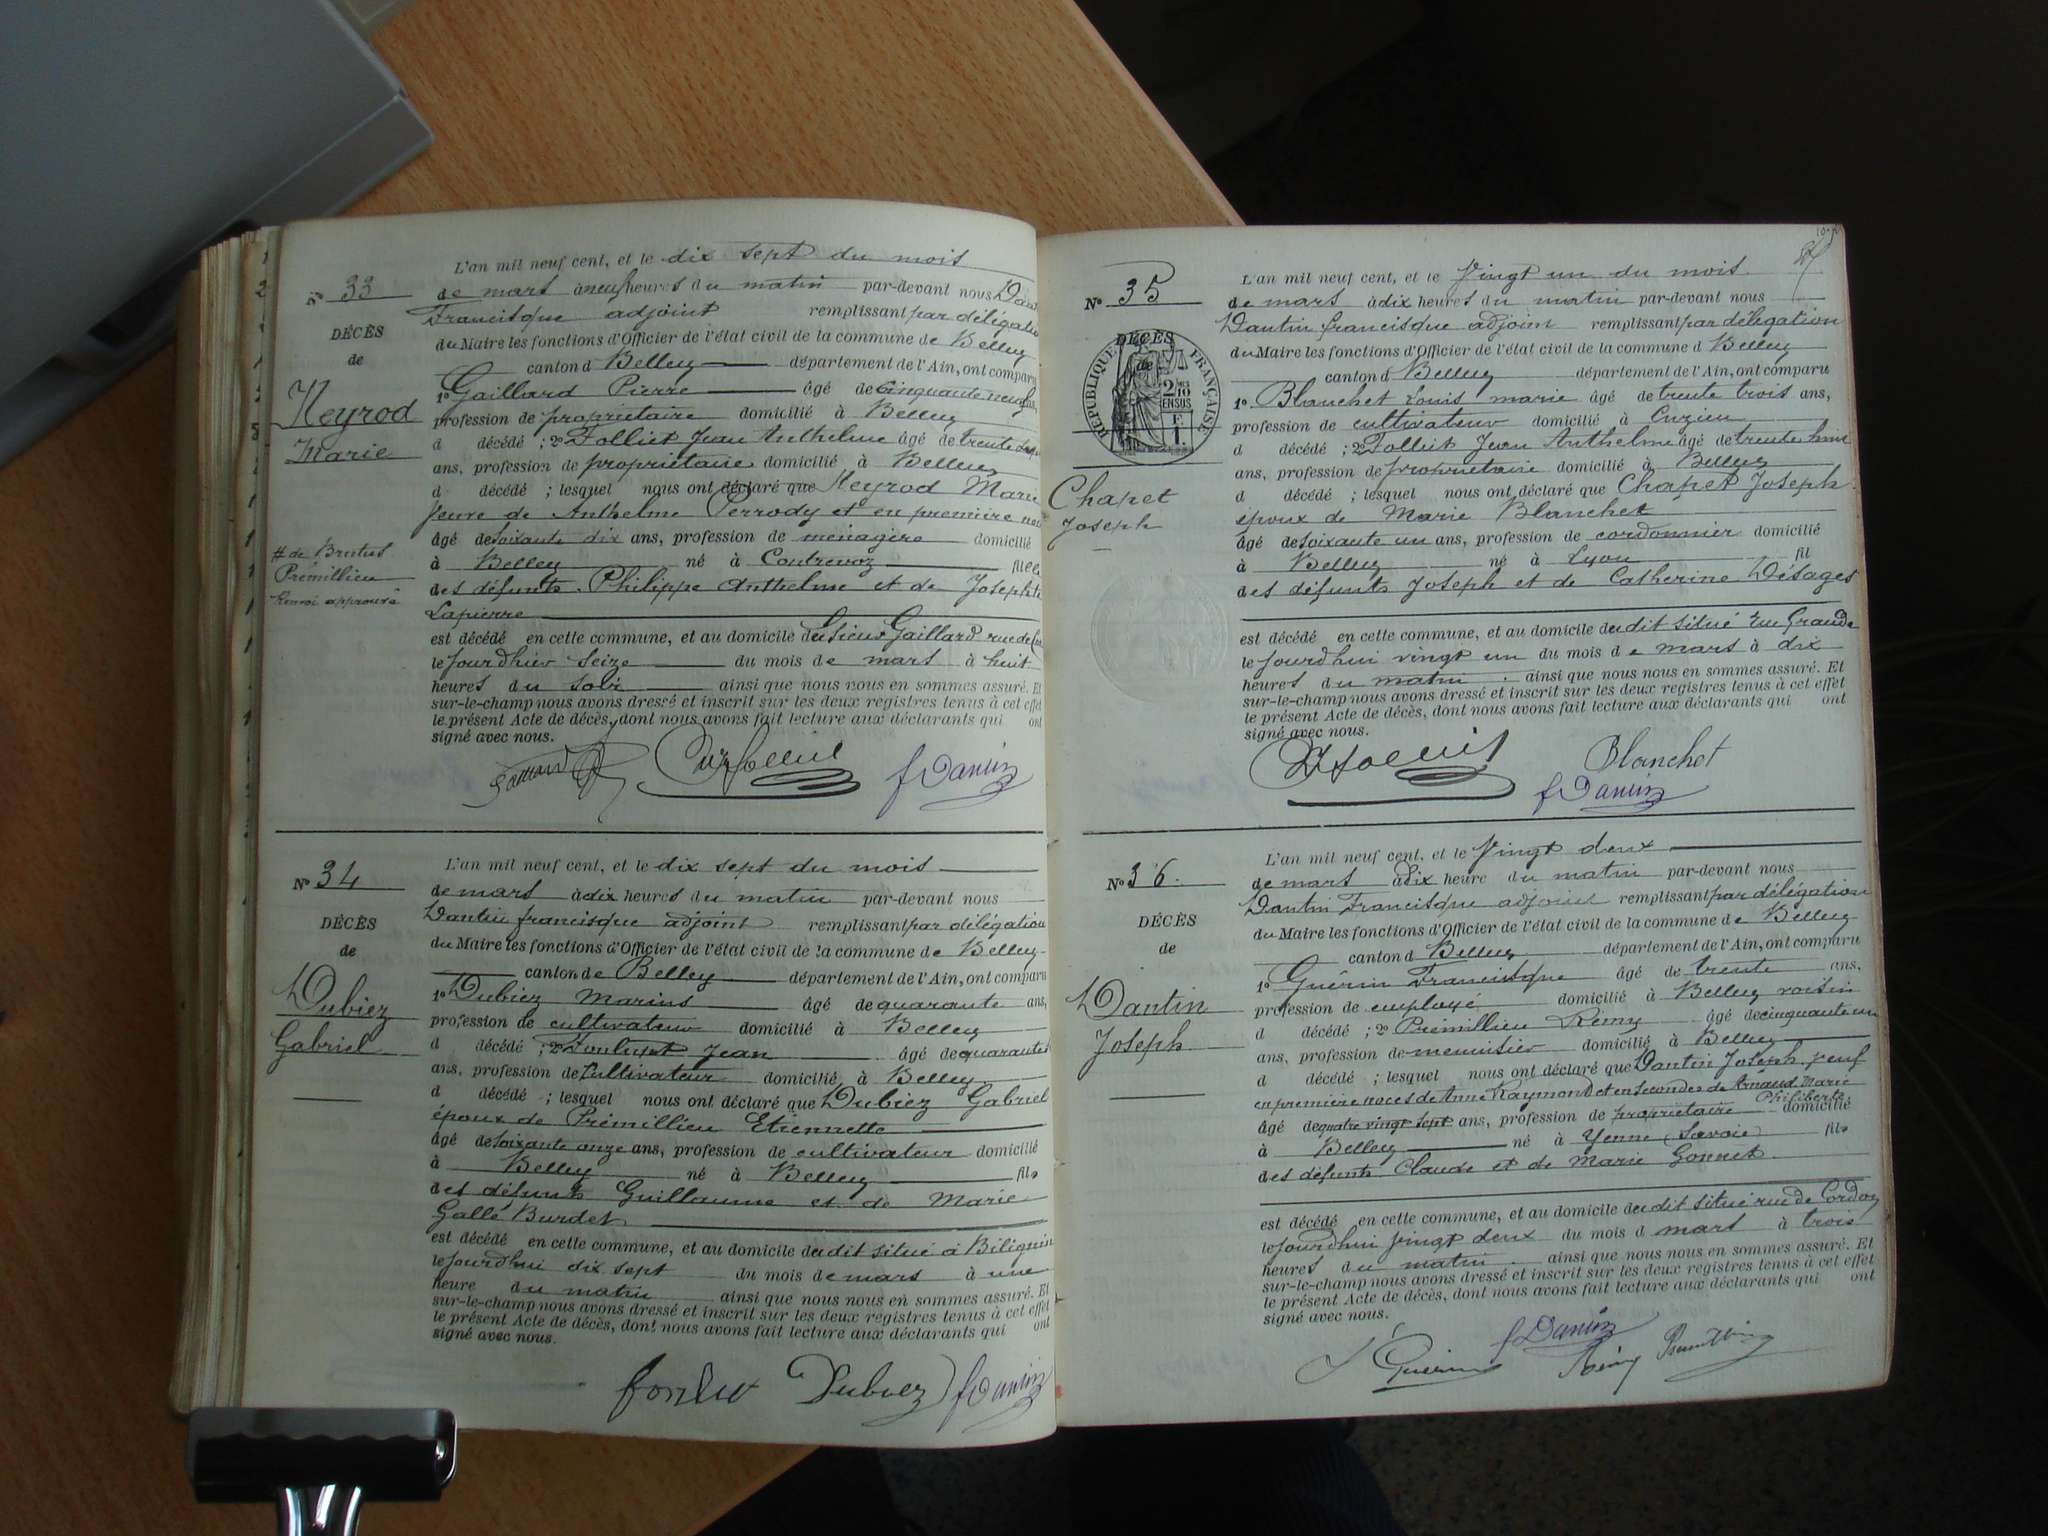 N° 33
DÉCÈS
de
Neyrod
Marie
# de Brutus
Prémillieu
Renvoi approuvé
L'an mil neuf cent, et le dix sept du mois
de mars à neuf heures du matin par-devant nous
Francisque adjoint remplissant par délégation
du Maire les fonctions d'Officier de l'état civil de la commune de Belley
canton d Belley département de l'Ain, ont comparu
1° Gaillard Pierre âgé de cinquante neuf
profession de propriétaire domicilié à Belley
d décédé ; 2° Folliet Jean Anthelme âgé de trente
ans, profession de propriétaire domicilié à Belley
d décédé ; lesquel nous ont déclaré que Neyrod Marie
veuve de Anthelme Perrody et en première
âgé de soixante dix ans, profession de ménagère domicilié
à Belley né à Contrevoz fille
des défunts Philippe Anthelme et de Josephte
Lapierre
est décédé en cette commune, et au domicile du sieur Gaillard rue de
le jourd'hier seize du mois de mars à huit
heures du soir ainsi que nous nous en sommes assuré. Et
sur-le-champ nous avons dressé et inscrit sur les deux registres tenus à cet effet
le présent Acte de décès, dont nous avons fait lecture aux déclarants qui ont
signé avec nous.
Gaillard f Dantin
N° 34
DÉCÈS
de
Dubiez
Gabriel
L'an mil neuf cent, et le dix sept du mois
de mars à dix heures du matin par-devant nous
Dantin francisque adjoint remplissant par délégation
du Maire les fonctions d'Officier de l'état civil de la commune de Belley
canton de Belley département de l'Ain, ont comparu
1° Dubiez Marius âgé de quarante ans,
profession de cultivateur domicilié à Belley
d décédé ; 2° Jean âgé de quarante
ans, profession de cultivateur domicilié à Belley
d décédé ; lesquel nous ont déclaré que Dubiez Gabriel
époux de Prémillieu Etiennette
âgé de soixante onze ans, profession de cultivateur domicilié
à Belley né à Belley fils
des défunts Guillaume et de Marie
Gallé Burdet
est décédé en cette commune, et au domicile du dit situé à Bilignin
le jourd'hui dix sept du mois de mars à une
heure du matin ainsi que nous nous en sommes assuré. Et
sur-le-champ nous avons dressé et inscrit sur les deux registres tenus à cet effet
le présent Acte de décès, dont nous avons fait lecture aux déclarants qui ont
signé avec nous.
Dubiez f Dantin
N° 35
DÉCÈS
de
RÉPUBLIQUE FRANÇAISE
2/10 EN SUS
F
1.
Chapet
Joseph
L'an mil neuf cent, et le Vingt un du mois
de mars à dix heures du matin par-devant nous
Dantin francisque adjoint remplissant par délégation
du Maire les fonctions d'Officier de l'état civil de la commune d Belley
canton d Belley département de l'Ain, ont comparu
1° Blanchet Louis marie âgé de trente trois ans,
profession de cultivateur domicilié à Cuzieu
d décédé ; 2° Folliet Jean Anthelme âgé de trente huit
ans, profession de propriétaire domicilié à Belley
d décédé ; lesquel nous ont déclaré que Chapet Joseph
époux de Marie Blanchet
âgé de soixante un ans, profession de cordonnier domicilié
à Belley né à Lyon fil
des défunts Joseph et de Catherine Désages
est décédé en cette commune, et au domicile du dit situé rue Grande
le jourd'hui vingt un du mois de mars à dix
heures du matin ainsi que nous nous en sommes assuré. Et
sur-le-champ nous avons dressé et inscrit sur les deux registres tenus à cet effet
le présent Acte de décès, dont nous avons fait lecture aux déclarants qui ont
signé avec nous.
Blanchet
f Dantin
N° 36
DÉCÈS
de
Dantin
Joseph
L'an mil neuf cent, et le Vingt deux
de mars à dix heure du matin par-devant nous
Dantin Francisque adjoint remplissant par délégation
du Maire les fonctions d'Officier de l'état civil de la commune de Belley
canton d Belley département de l'Ain, ont comparu
1° Guérin Francisque âgé de trente ans,
profession de employé domicilié à Belley voisin
d décédé ; 2° Prémillieu Rémy âgé de cinquante un
ans, profession de menuisier domicilié à Belley
d décédé ; lesquel nous ont déclaré que Dantin Joseph veuf
en première noces de Anne Raymond et en secondes de Arnaud Marie
Philiberte
âgé de quatre vingt sept ans, profession de propriétaire domicilié
à Belley né à Yenne (Savoie) fils
des défunts Claude et de Marie Gonnet
est décédé en cette commune, et au domicile du dit situé rue de Cordon
le jourd'hui vingt deux du mois d mars à trois
heures du matin ainsi que nous nous en sommes assuré. Et
sur-le-champ nous avons dressé et inscrit sur les deux registres tenus à cet effet
le présent Acte de décès, dont nous avons fait lecture aux déclarants qui ont
signé avec nous.
f Dantin
Guérin Rémy